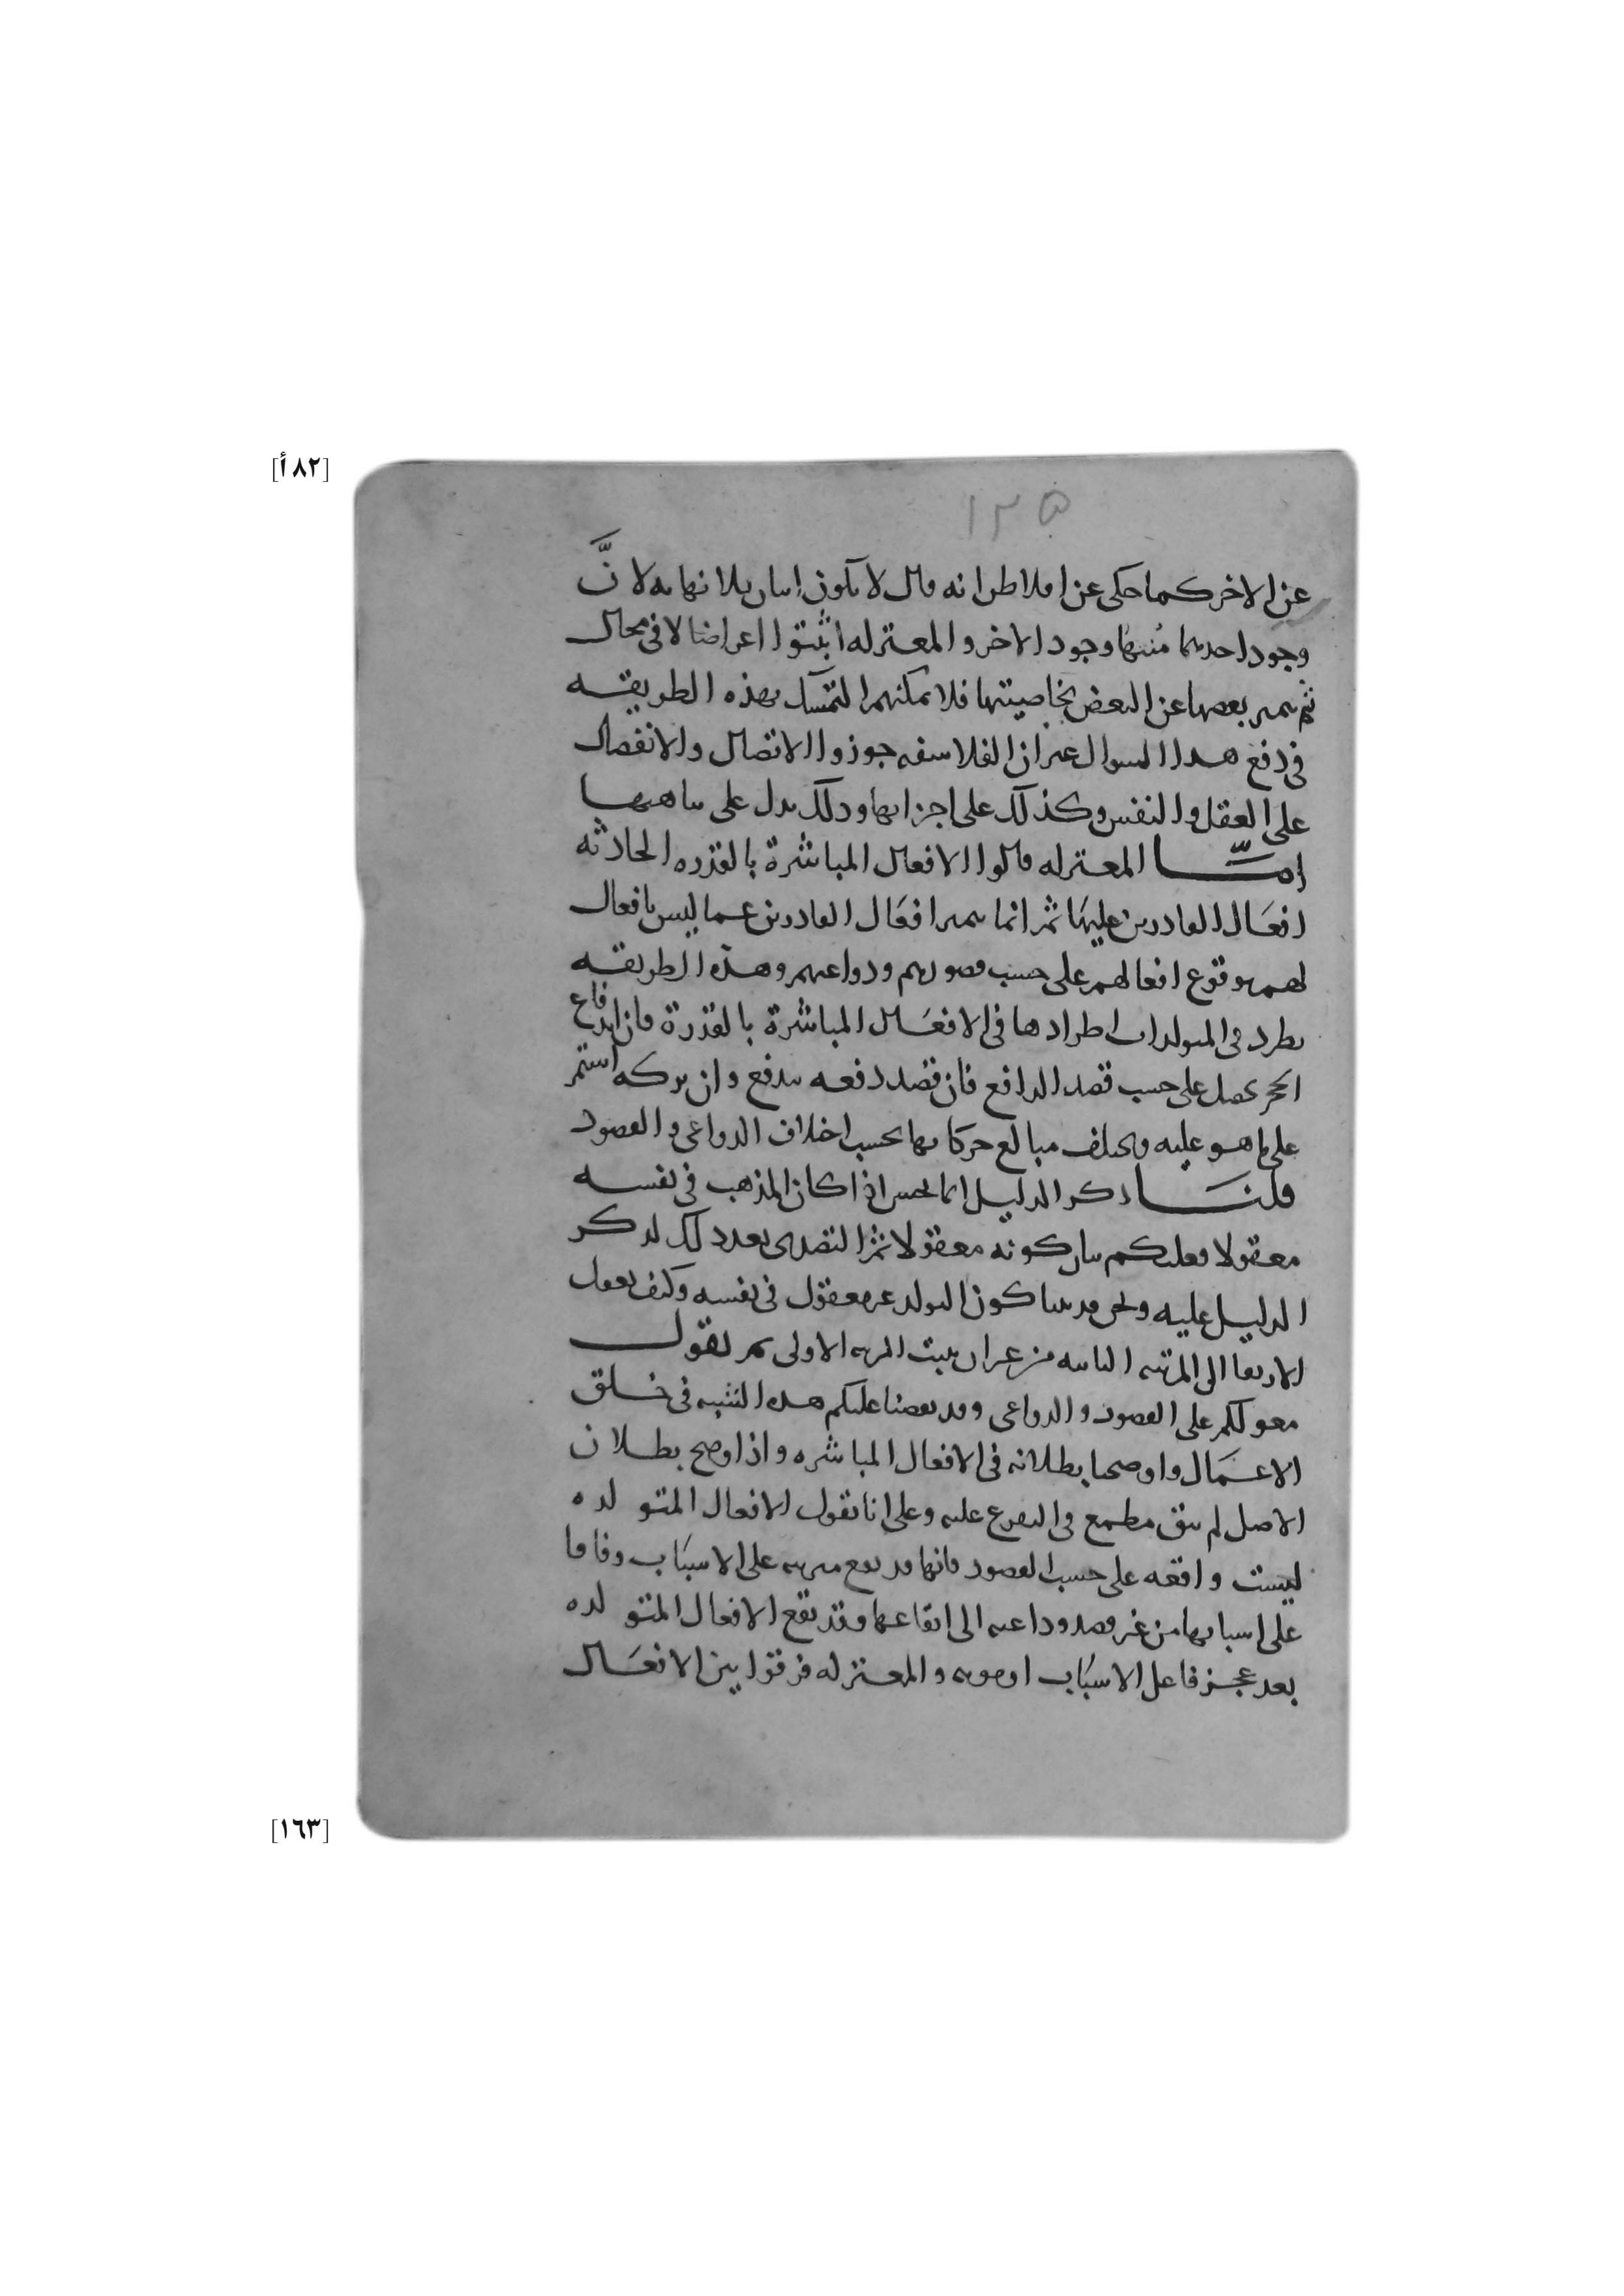 [٨٢أ]
١٢٥
عن الاخر كما حكى عن افلاطن انه قال لا يكون اثنان بلا نهايه لانَّ
وجود احديهما منتها وجود الاخر والمعتزله اثبتوا اعراضا لا فى محال
ثم يميز بعضها عن البعض بخاصيتها فلا يمكنهم التمسك بهذه الطريقه
فى دفع هذا السوال غير ان الفلاسفه جوزوا الاتصال والانفصال
على العقل والنفس وكذلك على اجزايها وذلك يدل على تناهيها
امّا المعتزله قالوا الافعال المباشرة بالقدره الحادثه
افعال القادرين عليها ثم انما يميز افعال القادرين عما ليس بافعال
لهم بوقوع افعالهم على حسب قصودهم ودواعيهم وهذه الطريقه
يطرد فى المتولدات اطرادها فى الافعال المباشرة بالقدرة فان اندفاع
الحجر يحصل على حسب قصد الدافع فان قصد دفعه يندفع وان تركه استمر
على ما هو عليه ويختلف مبالغ حركاتها بحسب اختلاف الدواعى والقصود
قلنا ذكر الدليل انما يحسن اذا كان المذهب فى نفسه
معقولا فعليكم بيان كونه معقولا ثم التصدى بعد ذلك لذكر
الدليل عليه ونحن قد بينا كون التولد غير معقول فى نفسه وكيف يعقل
الارتقا الى المرتبه الثانيه من غير ان يثبت المرتبه الاولى ثم نقول
معولكم على القصود والدواعى وقد نقضنا عليكم هذه الشبه فى خلق
الاعمال واوضحنا بطلانه فى الافعال المباشره واذا وضح بطلان
الاصل لم يبق مطمع فى التفريع عليه وعلى انا نقول الافعال المتولده
ليست واقعه على حسب القصود فانها قد تقع مرتبه على الاسباب وفاقا
على اسبابها من غير قصد وداعيه الى ايقاعها وقد تقع الافعال المتولده
بعد عجز فاعل الاسباب او موته والمعتزله فرقوا بين الافعال
[١٦٣]